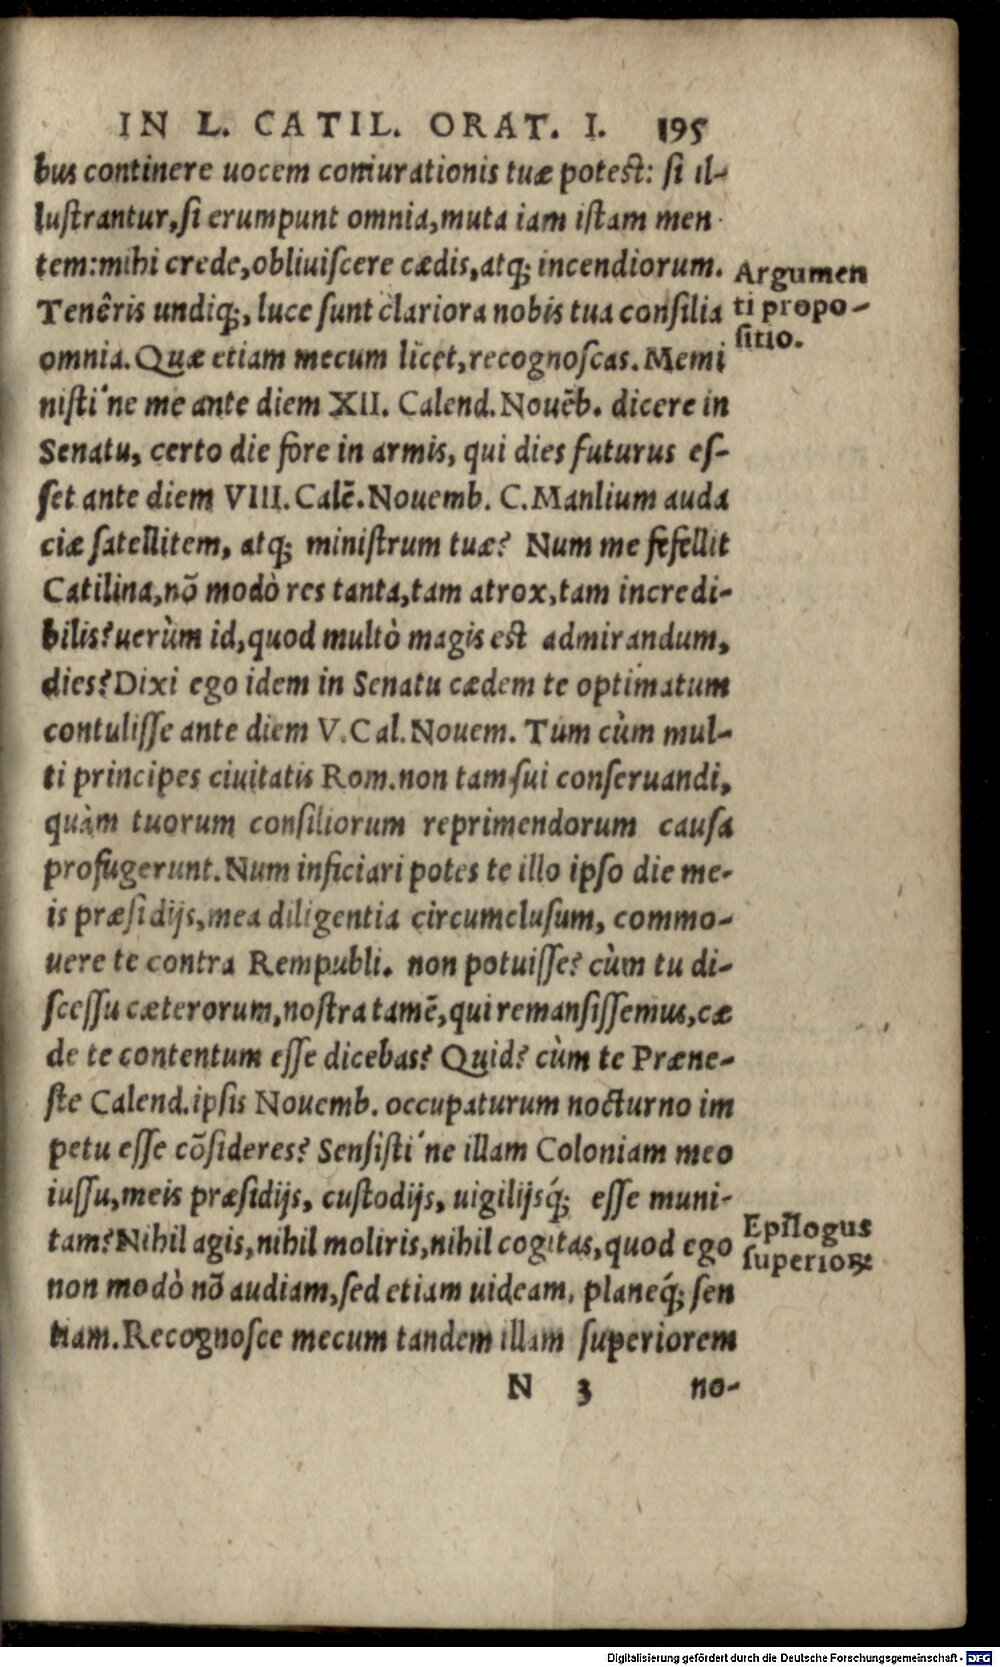 IN L. CATIL. ORAT. I. 195
bus continere uocem coniurationis tuæ potest: si il-
lustrantur, si erumpunt omnia, muta iam istam men
tem: mihi crede, obliuiscere cædis, atq; incendiorum.
Tenêris undiq;, luce sunt clariora nobis tua consilia
omnia. Quæ etiam mecum licet, recognoscas. Memi
nisti'ne me ante diem XII. Calend. Nouēb. dicere in
Senatu, certo die fore in armis, qui dies futurus es-
set ante diem VIII. Calē. Nouemb. C. Manlium auda
ciæ satellitem, atq; ministrum tuæ? Num me fefellit
Catilina, nō modò res tanta, tam atrox, tam incredi-
bilis? uerùm id, quod multò magis est admirandum,
dies? Dixi ego idem in Senatu cædem te optimatum
contulisse ante diem V. Cal. Nouem. Tum cùm mul-
ti principes ciuitatis Rom. non tam sui conseruandi,
quàm tuorum consiliorum reprimendorum causa
profugerunt. Num inficiari potes te illo ipso die me-
is præsidijs, mea diligentia circumclusum, commo-
uere te contra Rempubli. non potuisse? cùm tu di-
scessu cæterorum, nostra tamē, qui remansissemus, cæ
de te contentum esse dicebas? Quid? cùm te Præne-
ste Calend. ipsis Nouemb. occupaturum nocturno im
petu esse cōsideres? Sensisti'ne illam Coloniam meo
iussu, meis præsidijs, custodijs, uigilijsq́; esse muni-
tam? Nihil agis, nihil moliris, nihil cogitas, quod ego
non modò nō audiam, sed etiam uideam, planeq́; sen
tiam. Recognosce mecum tandem illam superiorem
N 3 no-
Argumen
ti propo-
sitio.
Epilogus
superioꝝ
Digitalisierung gefördert durch die Deutsche Forschungsgemeinschaft - DFG